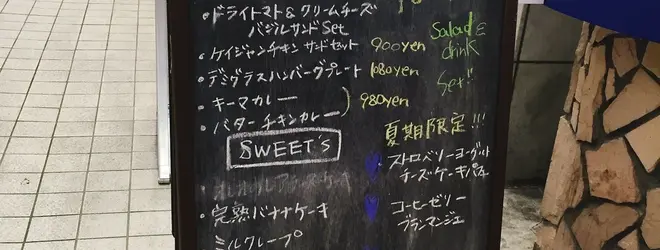 ・ドライトマト&クリームチーズ
バジルサンドSet
・ケイジャンチキン サンドセット 900yen
・デミグラスハンバーグプレート 1080yen
・キーマカレー
・バターチキンカレー
980yen
Salad &
drink
Set!!
SWEET'S
・完熟バナナケーキ
ミルクレープ
夏期限定!!!
ストロベリーヨーグルト
チーズケーキパフェ
コーヒーゼリー
ブランマンジェ